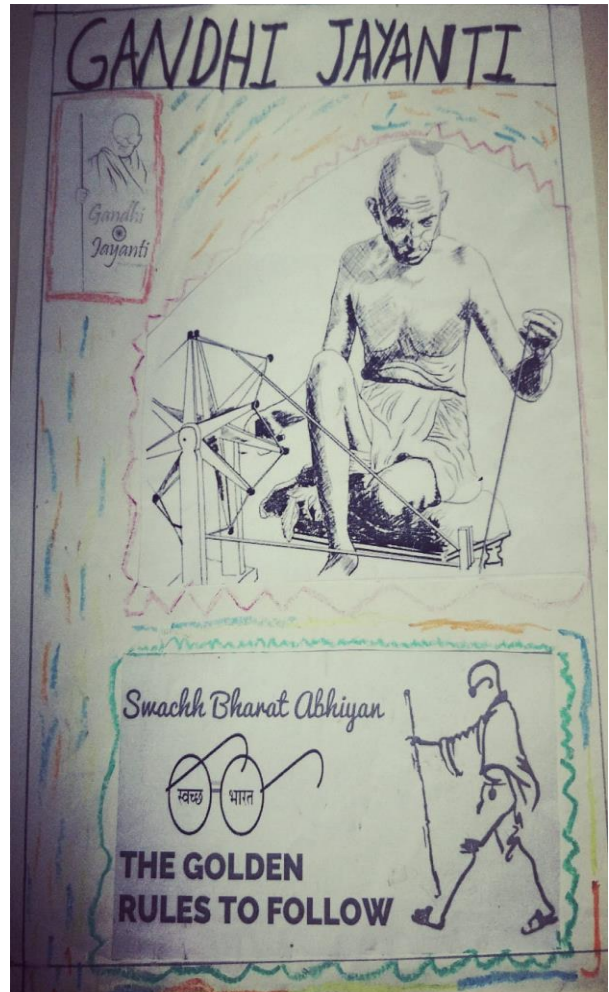 GANDHI JAYANTI
Gandhi
Jayanti
Swachh Bharat Abhiyan
स्वच्छ भारत
THE GOLDEN
RULES TO FOLLOW